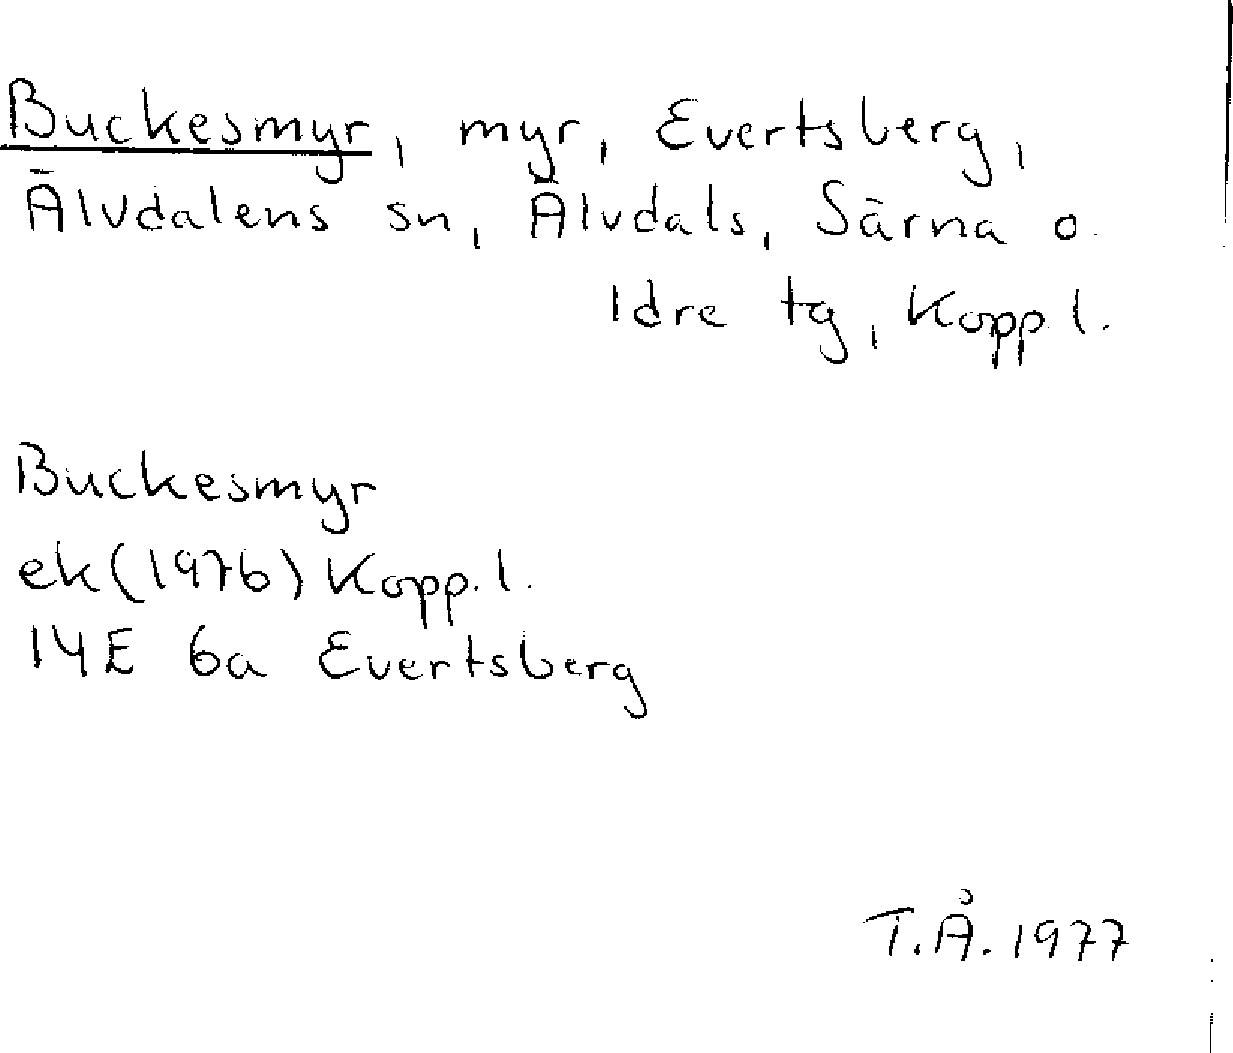 Buckesmyr, myr, Evertsberg,
Älvdalens sn, Älvdals, Särna o.
Idre tg, Kopp l.
Buckesmyr
ek (1976) Kopp. l.
14E 6a Evertsberg
T.Å. 1977